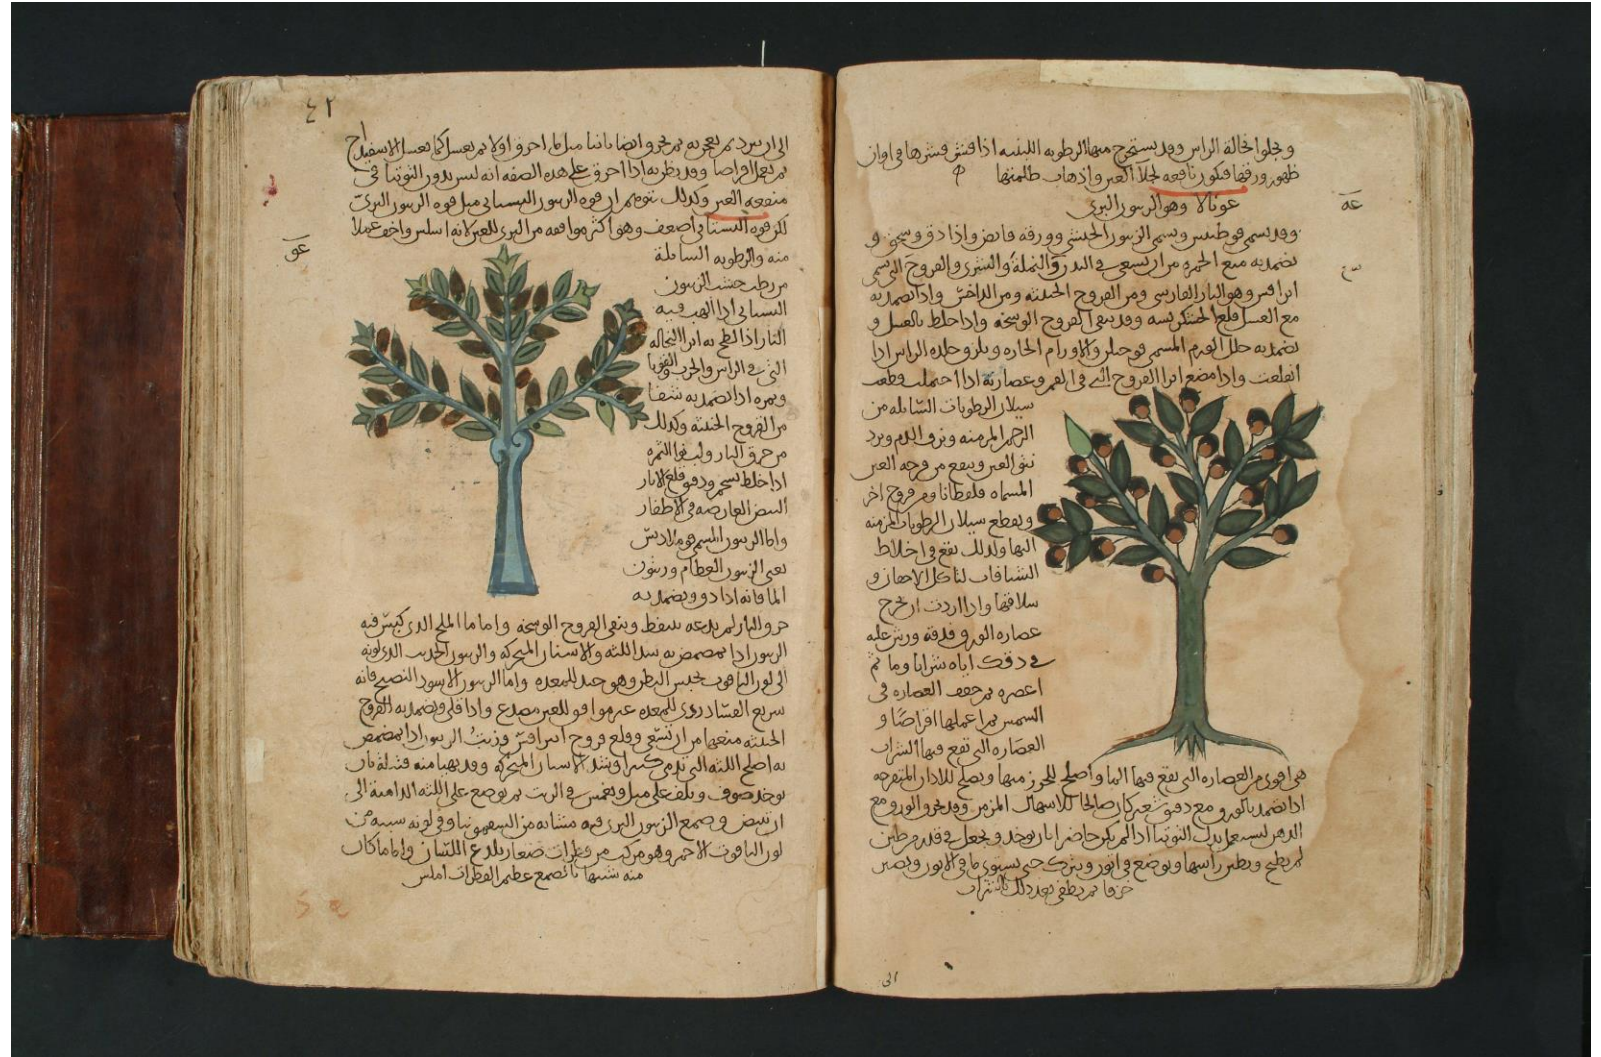 ويجلوا نخالة الراس وقد يستخرج منها الرطوبه اللبنيه اذا قشر قشرها في اوان
ظهور ورقها فيكون نافعه لجلا العين واذهاب ظلمتها
عونالا وهو الزيتون البري
عه
وقد يسمى قوطنس ويسمى الزيتون الحبشي وورقه قابض واذا دق وسحق و
تضمد به منع الحمره من ان تسعى في البدن والنملة والشرى والقروح التي تسمى
انراقس وهو النار الفارسي ومن القروح الخبيثه ومن الداخس واذا تضمد به
مع العسل قلع الخشكريسه وقد ينقي القروح الوسخه واذا خلط بالعسل و
تضمد به حلل الورم المسمى فوجيلن والاورام الحاره ويلزق جلده الراس اذا
انقلعت واذا مضغ ابرا القروح التي في الفم وعصارته اذا احتملت قطعت
سيلان الرطوبات السايله من
الرحم المزمنه ونزف الدم ويرد
نتو العين وينفع من قرحه العين
المسماه فلقطانا ومن قروح اخر
ويقطع سيلان الرطوبات المزمنه
اليها ولذلك يقع في اخلاط
الشيافات لتاكل الاجفان و
سلاقها واذا اردت ان تخرج
عصاره الورق فدقه ورش عليه
في دقك اياه شرابا وما ثم
اعصره ثم جفف العصاره في
الشمس ثم اعملها اقراصا و
العصاره التي تقع فيها الشراب
هي اقوى من العصاره التي يقع فيها الما واصلح للخزن منها ويصلح للاذان المتقرحه
اذا تضمد بالورق مع دقيق شعير كان صالحا للاسهال المزمن وقد يحرق الورق مع
الزهر ليستعمل بدل التوتيا اذا لم يكن حاضرا بان يوخذ ويجعل في قدر من طين
لم يطبخ ويطين راسها ويوضع في اتون ويترك حتى يستوي ما في الاتون ويصير
خزفا ثم يطفى بعد ذلك بالشراب
الى
٤٢
الى ان يبرد ثم يعجن به ثم يحرق ايضا ثانيا مثل ما احرق اولا ثم يغسل كما يغسل الاسفيداج
ثم يعمل اقراصا وقد يظن به اذا احرق على هذه الصفه انه ليس بدون التوتيا في
منفعه العين وكذلك نتوهم ان قوه الزيتون البستاني مثل قوه الزيتون البري
لكن قوه البستاني اضعف وهو اكثر موافقه من البري للعين لانه اسلس واخف عملا
عو
منه والرطوبه السايلة
من رطب خشب الزيتون
البستاني اذا الهب فيه
النار اذا لطخ به ابرا النخاله
التي في الراس والجرب والقوبا
وثمره اذا تضمد به شفا
من القروح الخبيثه وكذلك
من حرق النار ولب نوا الثمره
اذا خلط بشحم ودقيق قلع الاثار
البيض العارضه في الاظفار
واما الزيتون المسمى قومادس
يعني الزيتون العظام وزيتون
الما فانه اذا دق وتضمد به
حرق النار لم يدعه يتنفط وينقي القروح الوسخه واما ما الملح الذي كبس فيه
الزيتون اذا تمضمض به شد اللثه والاسنان المتحركه والزيتون الحديث الذي لونه
الى لون الياقوت يحبس البطن وهو جيد للمعده واما الزيتون الاسود النضيج فانه
سريع الفساد ردي للمعده غير موافق للعين مصدع واذا قلي وتضمد به القروح
الخبيثه منعها من ان تسعى وقلع قروح انراقس وزيت الزيتون اذا تمضمض
به اصلح اللثه التي تدمى كثيرا وشد الاسنان المتحركه وقد يهيا منه فتيلة بان
يوخذ صوف ويلف على ميل ويغمس في الزيت ثم يوضع على اللثه الداميه الى
ان تبيض وصمغ الزيتون البري فيه مشابه من السقمونيا وفي لونه شبيه من
لون الياقوت الاحمر وهو مركب من قطرات صغار يلذع اللسان واما ما كان
منه شبيها بالصمغ عظيم القطرات املس